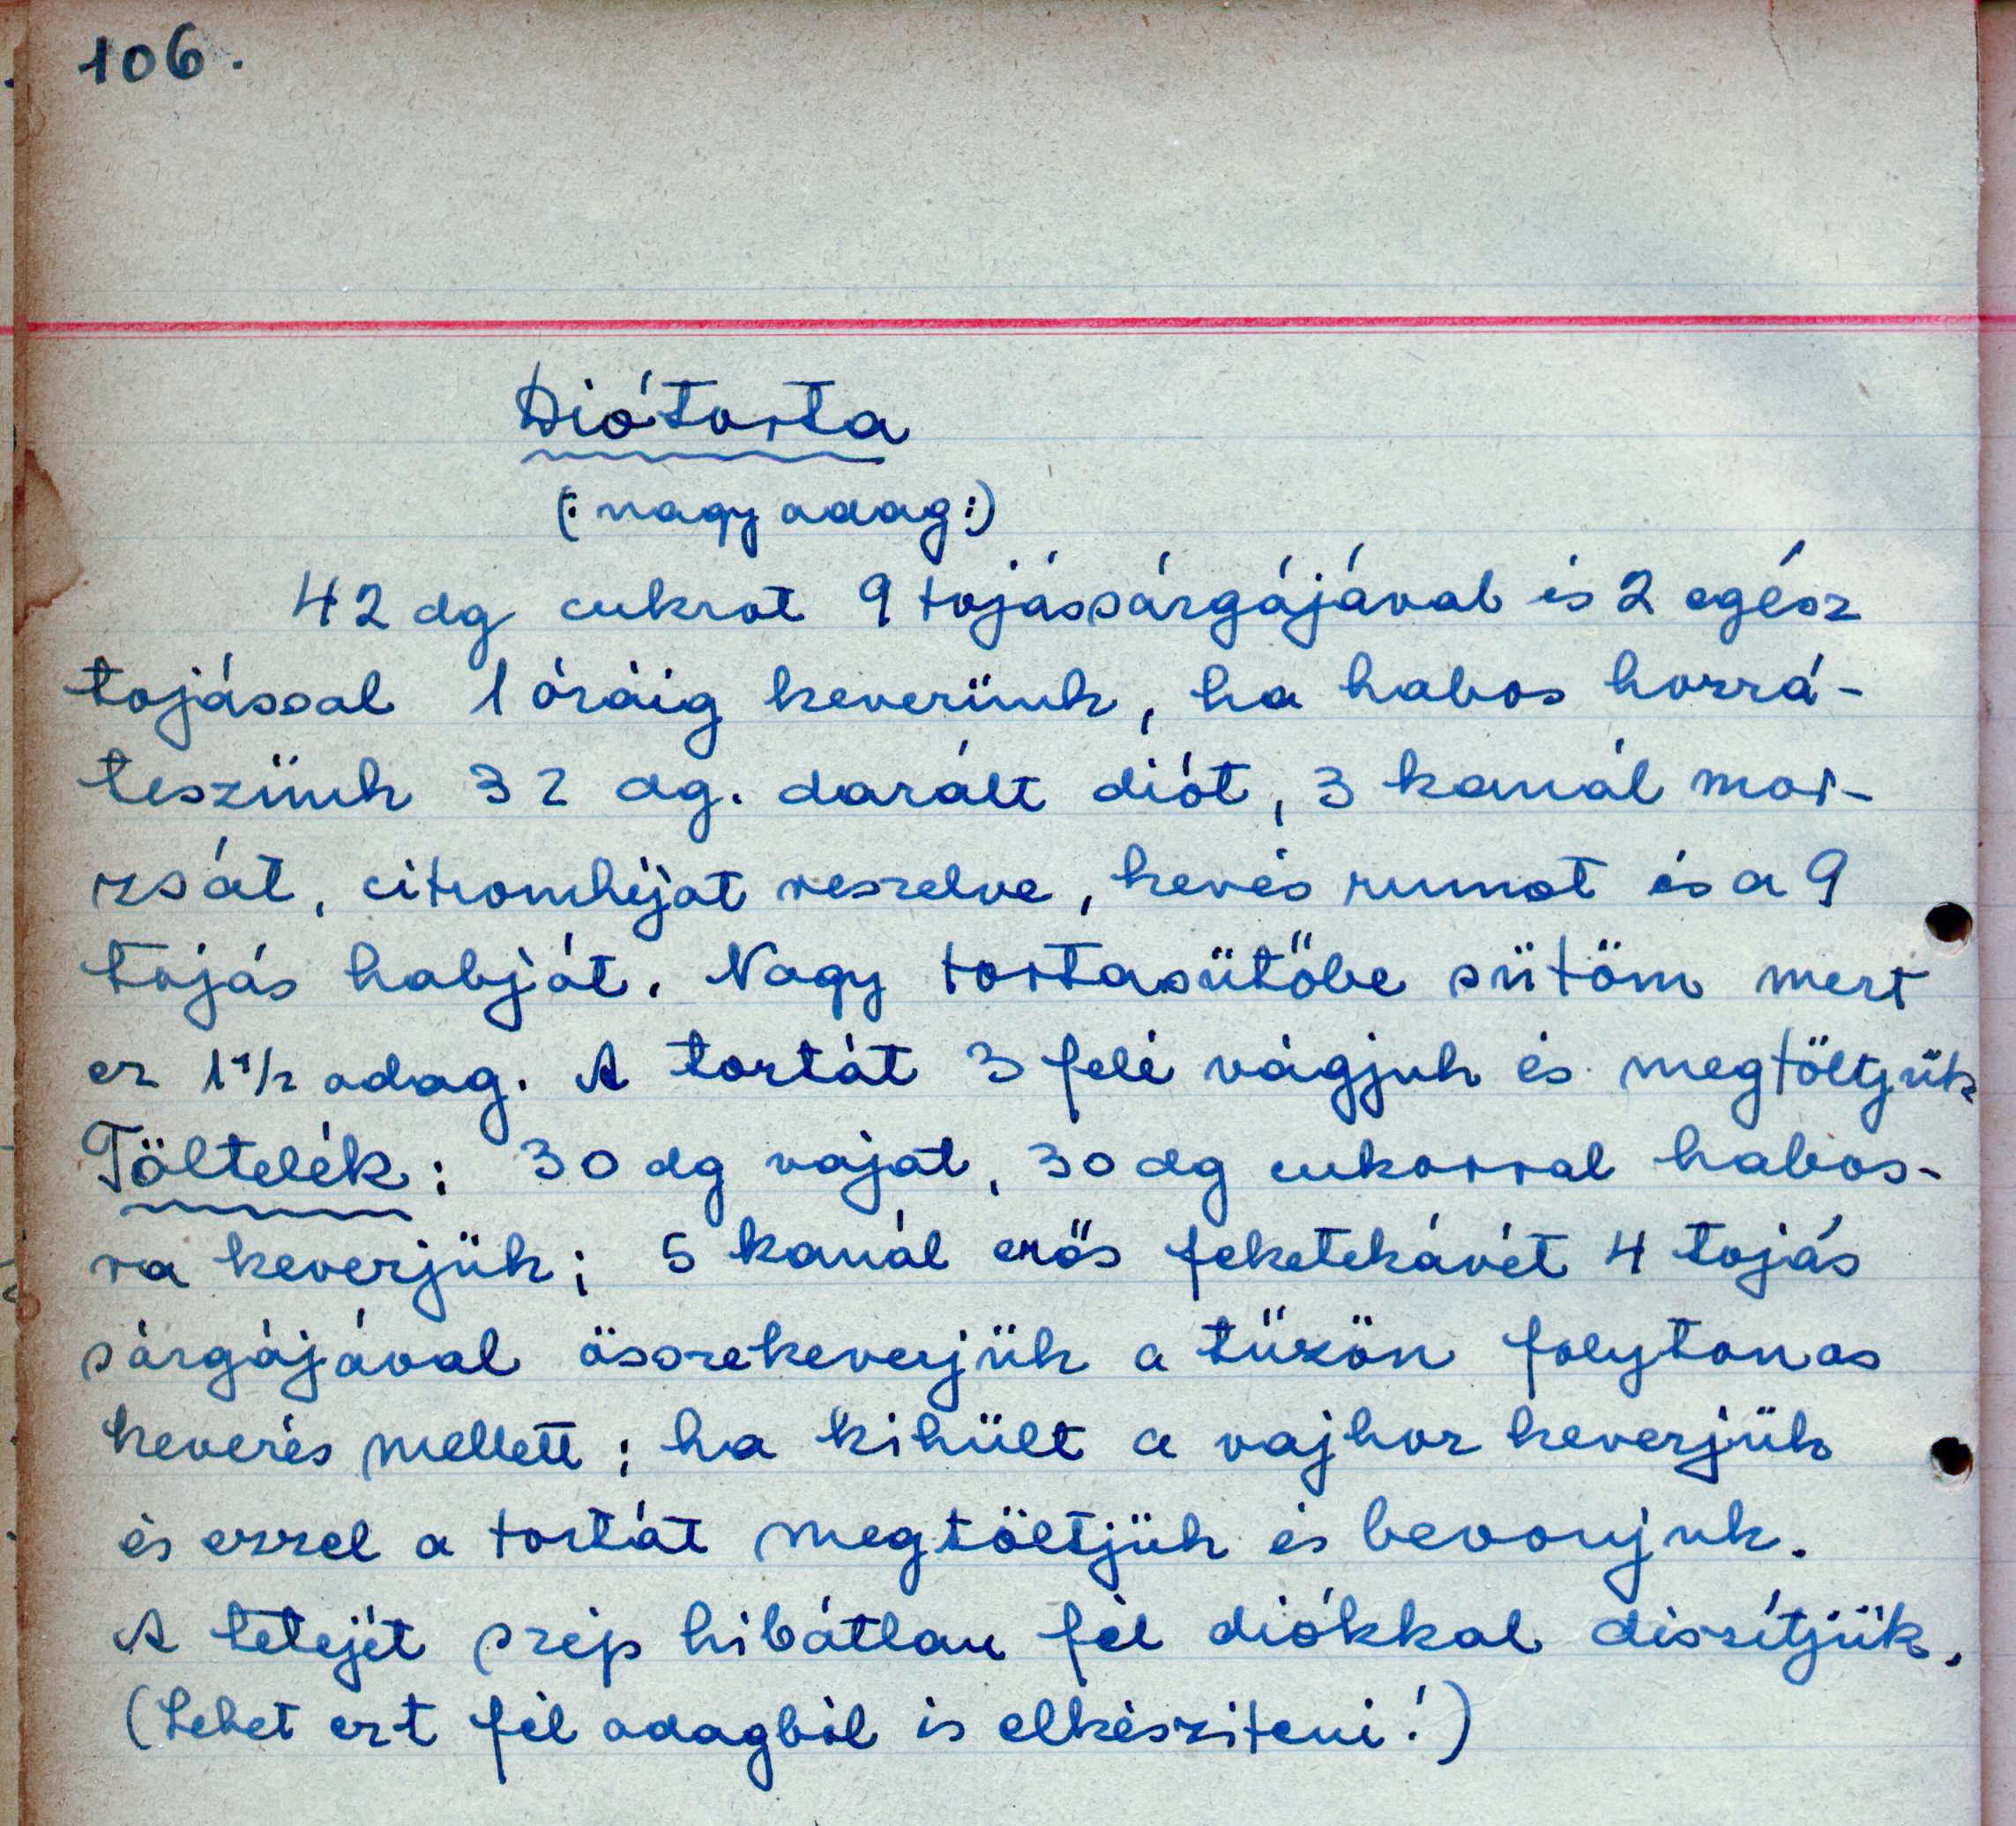 106.
Diótorta
(: nagy adag :)
42 dg cukrot 9 tojássárgájával és 2 egész
tojással 1 óráig keverünk, ha habos hozzá-
teszünk 32 dg. darált diót, 3 kanál mor-
zsát, citromhéjat reszelve, kevés rumot és a 9
tojás habját. Nagy tortasütőbe sütöm mert
ez 1 1/2 adag. A tortát 3 felé vágjuk és megtöltjük
Töltelék: 30 dg vajat, 30 dg cukorral habos-
ra keverjük; 5 kanál erős feketekávét 4 tojás
sárgájával összekeverjük a tűzön folytonos
keverés mellett; ha kihült a vajhoz keverjük
és ezzel a tortát megtöltjük és bevonjuk.
A tetejét szép hibátlan fél diókkal díszítjük.
(Lehet ezt fél adagból is elkésziteni!)